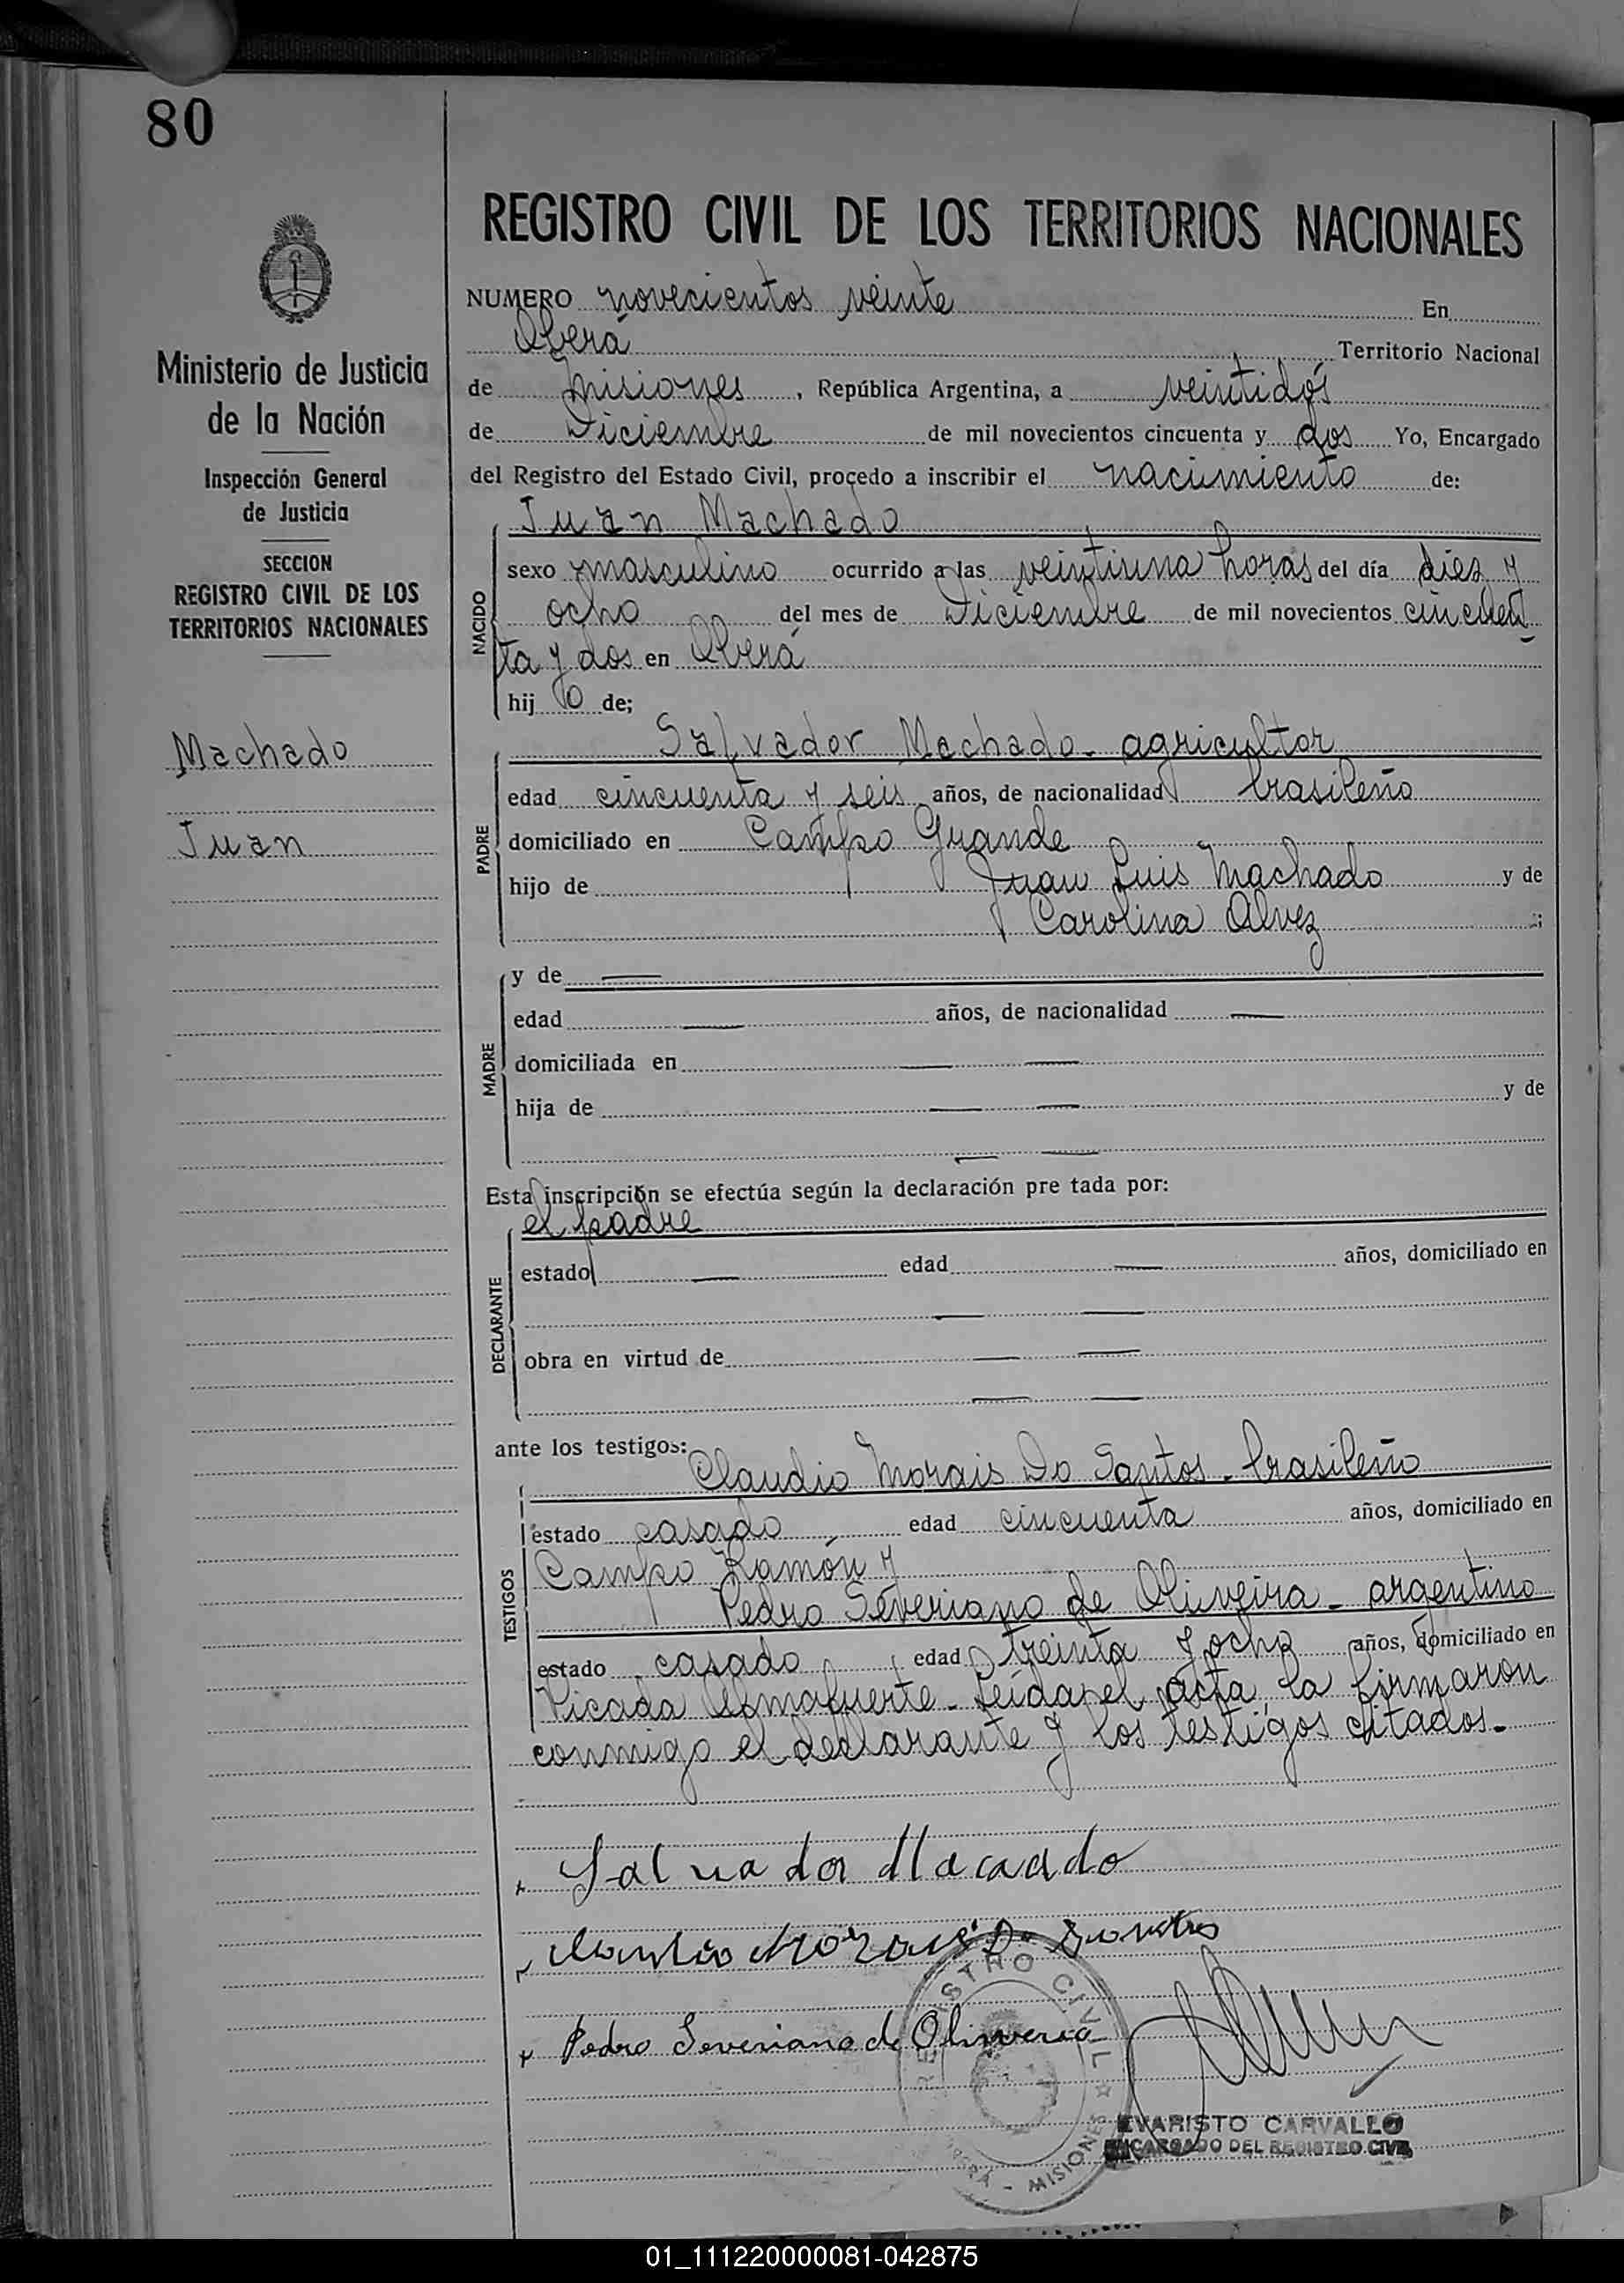 80
REGISTRO CIVIL DE LOS TERRITORIOS NACIONALES
NUMERO novecientos veinte En
Oberá Territorio Nacional
de Misiones, República Argentina, a veintidós
de Diciembre de mil novecientos cincuenta y dos Yo, Encargado
del Registro del Estado Civil, procedo a inscribir el nacimiento de:
Ministerio de Justicia
de la Nación
Inspección General
de Justicia
SECCION
REGISTRO CIVIL DE LOS
TERRITORIOS NACIONALES
Machado
Juan
NACIDO
Juan Machado
sexo masculino ocurrido a las veintiuna horas del día diez y
ocho del mes de Diciembre de mil novecientos cincuen
ta y dos en Oberá
hij o de;
PADRE
Salvador Machado - agricultor
edad cincuenta y seis años, de nacionalidad brasileño
domiciliado en Campo Grande
hijo de Juan Luis Machado y de
Carolina Alvez ;
MADRE
y de —
edad — años, de nacionalidad —
domiciliada en — —
hija de — — y de
— —
Esta inscripción se efectúa según la declaración pre tada por:
DECLARANTE
el padre
estado — edad — años, domiciliado en
— —
obra en virtud de — —
— —
ante los testigos:
TESTIGOS
Claudio Morais Do Santos - brasileño
estado casado edad cincuenta años, domiciliado en
Campo Ramón y
Pedro Severiano de Oliveira - argentino
estado casado edad treinta y ocho años, domiciliado en
Picada Almafuerte - Leída el acta, la firmaron
conmigo el declarante y los testigos citados.-
Salvador Macado
Claudio Morais Do Santos
Pedro Severiano de Oliveira
REGISTRO CIVIL
OBERÁ - MISIONES
EVARISTO CARVALLO
ENCARGADO DEL REGISTRO CIVIL
01_111220000081-042875